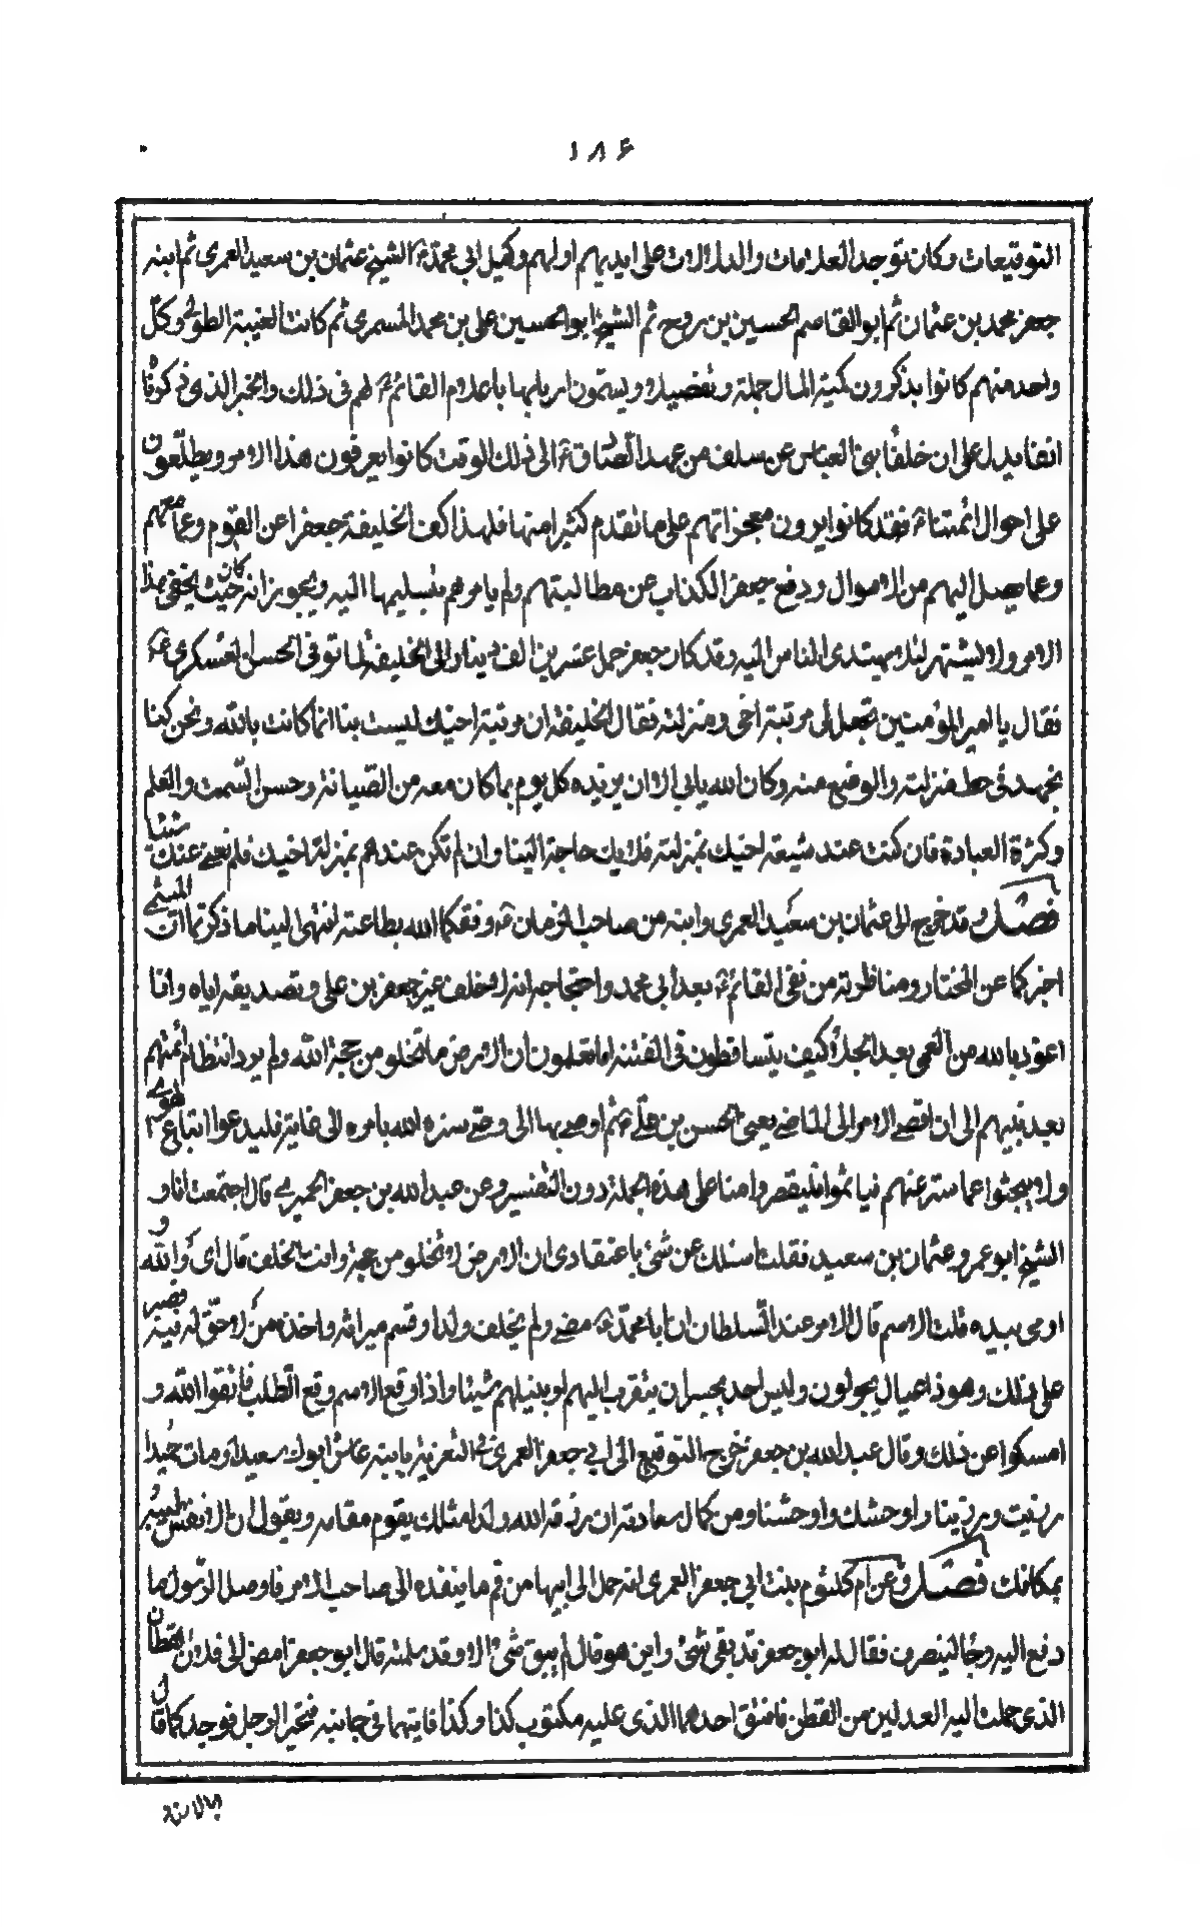 ١٨٦
التوقيعات وكان توجد العلامات والدلالات على ايديهم اولهم وكيل ابى محمد ع الشيخ عثمان بن سعيد العمرى ثم ابنه
جعفر محمد بن عثمان ثم ابو القاسم الحسين بن روح ثم الشيخ ابو الحسين على بن محمد السمرى ثم كانت الغيبة الطولى وكل
واحد منهم كانوا يذكرون كمية المال جملة وتفصيلا ويسمون اربابها باعلام القائم ع لهم فى ذلك والخبر الذى ذكرنا
انفا يدل على ان خلفا بنى العباس عن سلف من عهد الصادق ع الى ذلك الوقت كانوا يعرفون هذا الامر ويطلعون
على احوال ائمتنا ع فقد كانوا يرون معجزاتهم على ما تقدم كثيرا منها فلهذا كف الخليفة جعفرا عن القوم وعما معهم
وعما يصل اليهم من الاموال ودفع جعفر الكذاب عن مطالبتهم ولم يامرهم بتسليمها اليه وتجويز انه كان حيث يخفى هذا
الامر ولا يشتهر لئلا يهتدى الناس اليه وقد كان جعفر حمل عشرين الف دينار الى الخليفة لما توفى الحسن العسكرى ع
فقال يا امير المؤمنين تجعل لى مرتبة اخى ومنزلته فقال الخليفة ان مرتبة اخيك ليست بنا انما كانت بالله ونحن كنا
نجهد فى حط منزلته والوضع منه وكان الله يابى الا ان يزيده كل يوم بما كان معه من الصيانة وحسن السمت والعلم
وكثرة العبادة فان كنت عند شيعة اخيك بمنزلته فلا بك حاجة الينا وان لم تكن عندهم بمنزلة اخيك فلم نغن عنك شيئا
فصل وقد خرج الى عثمان بن سعيد العمرى وابنه من صاحب الزمان ع وفقكما الله بطاعته انتهى الينا ما ذكرتما ان الميثمى
اخبركما عن المختار ومناظرته من نفى القائم ع بعد ابى محمد واحتجاجه انه لا خلف غير جعفر بن على وتصديقه اياه وانا
اعوذ بالله من العمى بعد الجلا كيف يتساقطون فى الفتنة اما تعلمون ان الارض ما تخلو من حجة الله ولم يرد انتظام ائمتهم
بعد نبيهم الى ان افضى الامر الى الماضى يعنى الحسن بن على ع ثم اوصى بها الى وصى ستره الله بامره الى غاية فليدعوا اتباع الهوى
ولا يبحثوا عما ستر عنهم فياثموا فليقصروا منا على هذه الجملة دون التفسير وعن عبد الله بن جعفر الحميرى قال اجتمعت انا و
الشيخ ابو عمرو عثمان بن سعيد فقلت اسئلك عن شئ باعتقادى ان الارض لا تخلو من حجة وانت ما تخلف قال اى والله و
اومى بيده قلت الاسم قال الامر عند السلطان ان ابا محمد ع مضى ولم يخلف ولدا وقسم ميراثه واخذه من لا حق له فيه فصبر
على ذلك وهو ذا عيال يجولون وليس احد يجسر ان يتقرب اليهم او ينيلهم شيئا واذا وقع الاسم وقع الطلب فاتقوا الله و
امسكوا عن ذلك وقال عبد الله بن جعفر خرج التوقيع الى ابى جعفر العمرى فى التعزية بابيه عاش ابوك سعيدا ومات حميدا
رزيت ورزينا واوحشك واوحشنا ومن كمال سعادته ان رزقه الله ولدا مثلك يقوم مقامه ويقول ان الانفس طيبة
بمكانك فصل وعن ام كلثوم بنت ابى جعفر العمرى انه حمل الى ابيها من قم ما ينفذه الى صاحب الامر فاوصل الرسول ما
دفع اليه وجا لينصرف فقال له ابو جعفر قد بقى شئ واين هو قال لم يبق شئ الا وقد سلمته قال ابو جعفر امض الى فلان القطان
الذى حملت اليه العدلين من القطن فافتق احدهما الذى عليه مكتوب كذا وكذا فانهما فى جانبه فتحير الرجل فوجد كما قال